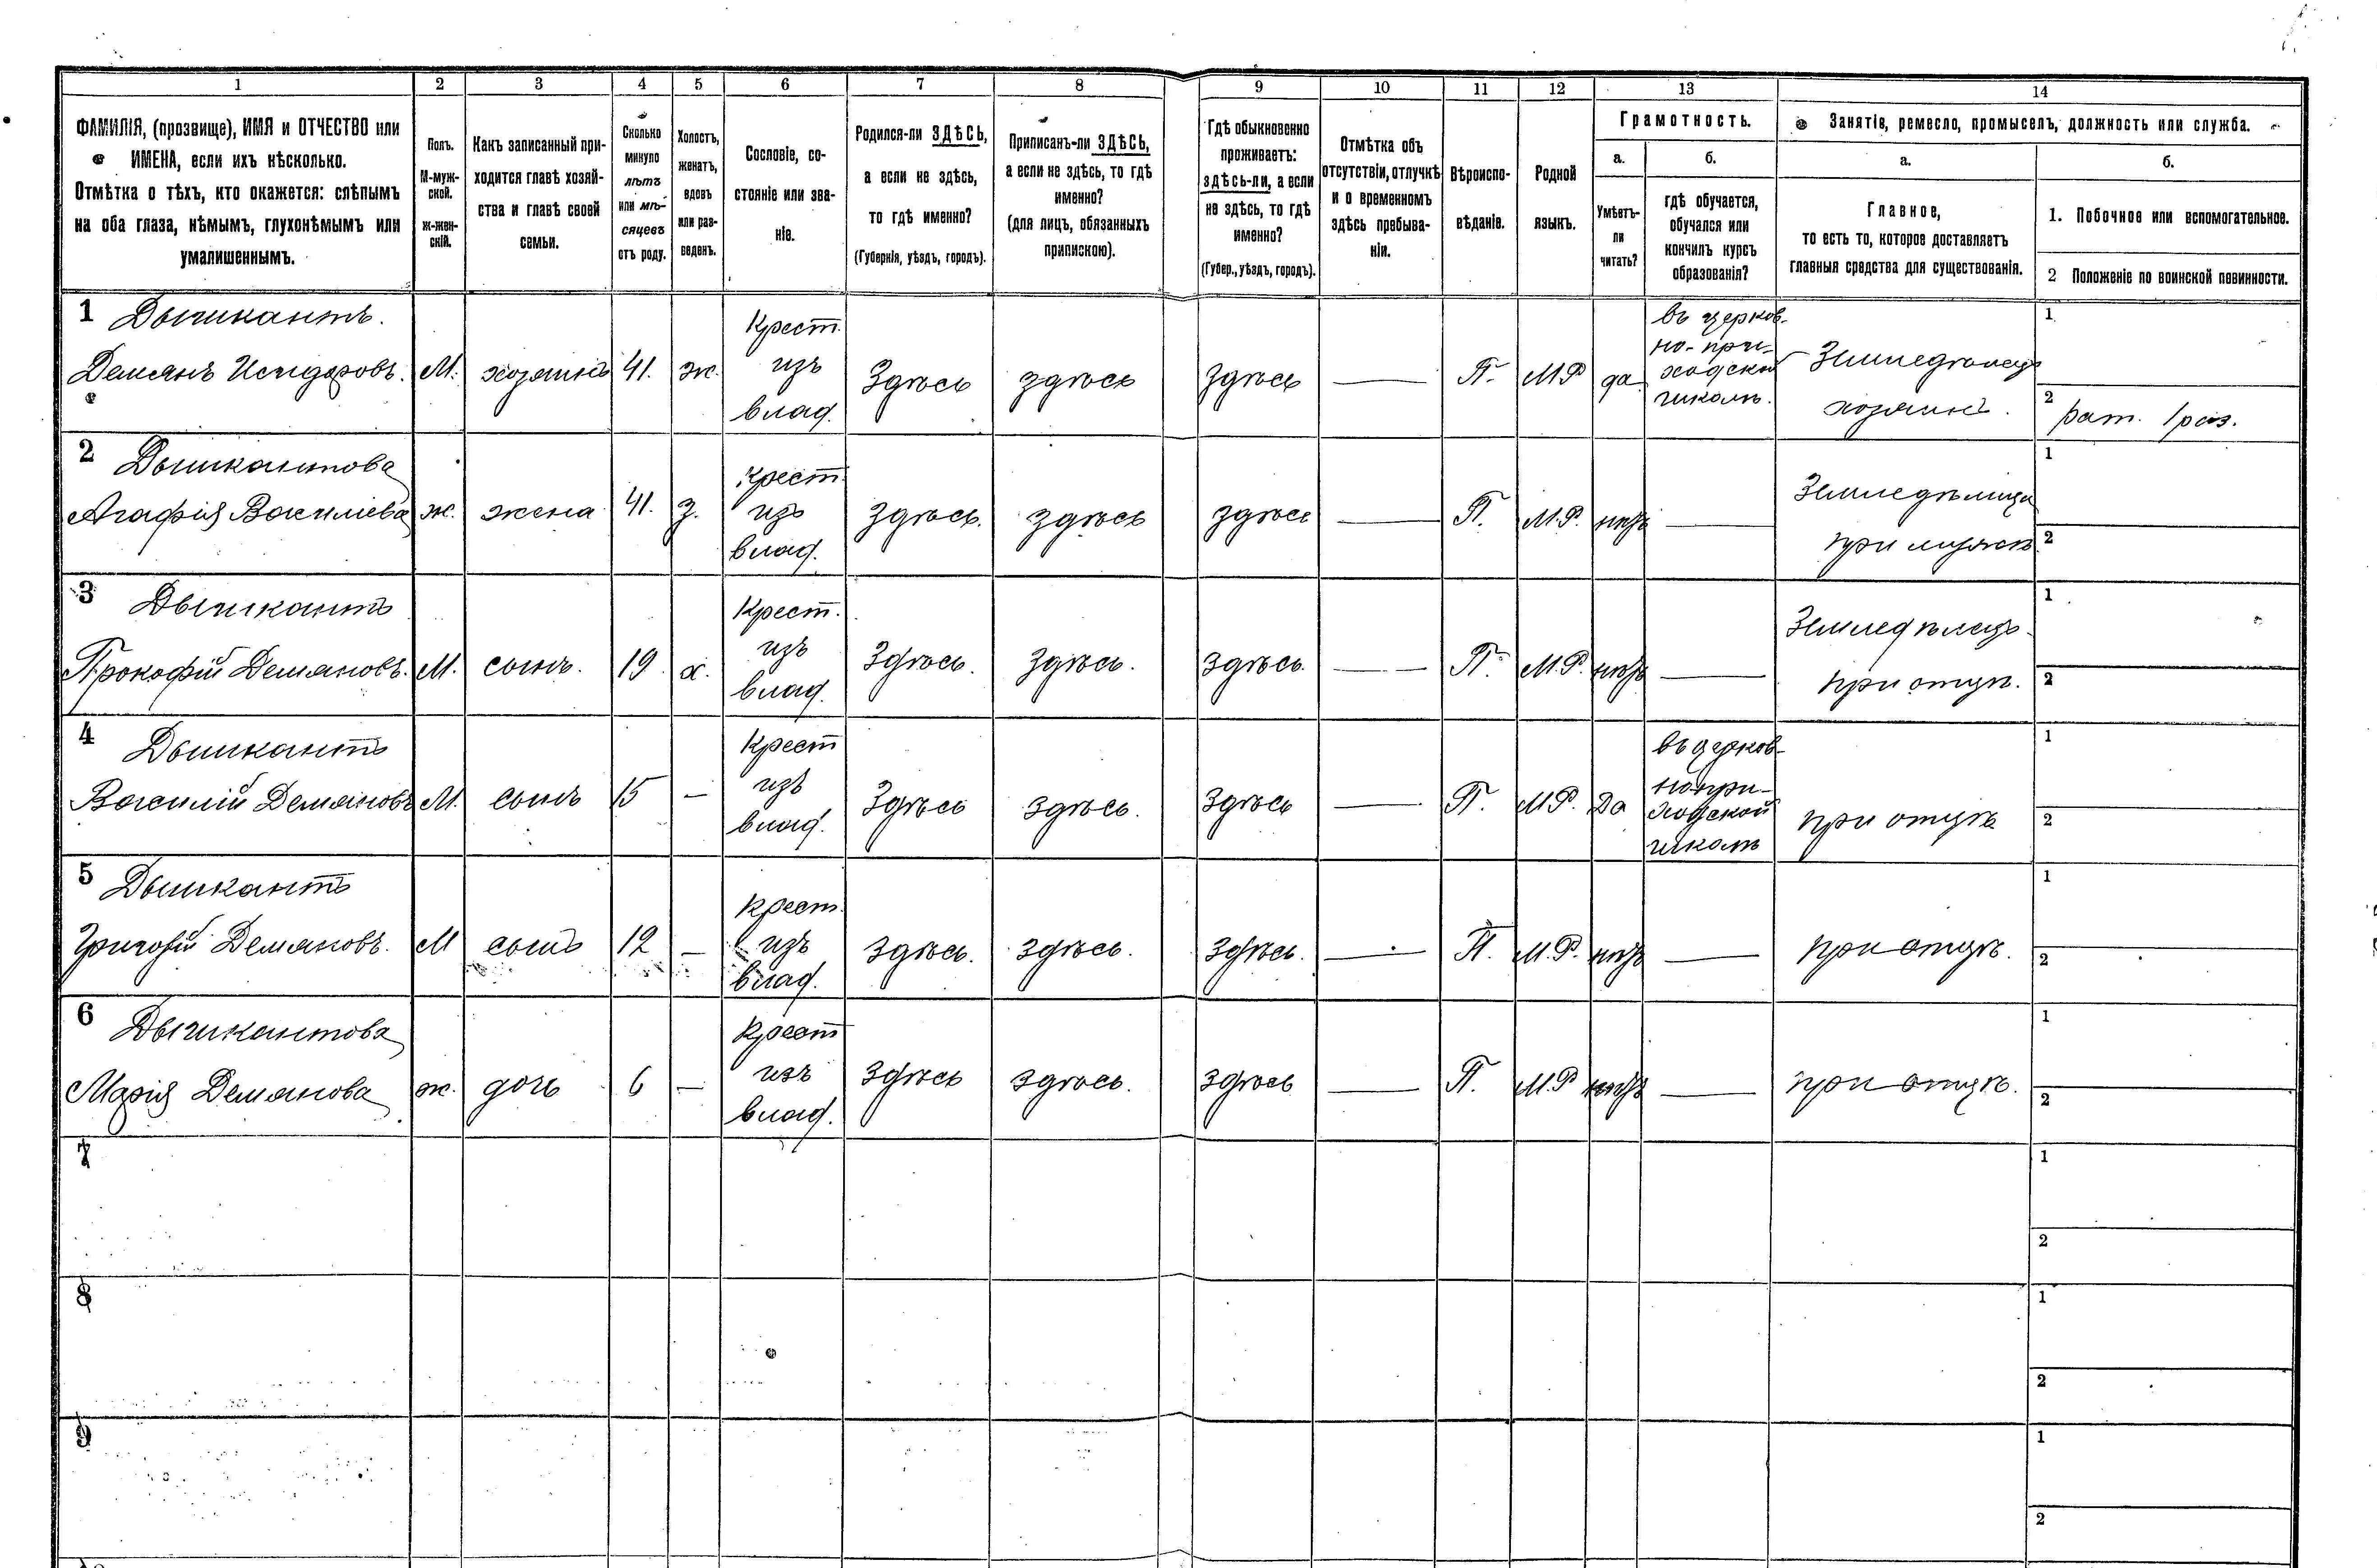 1 2 3 4 5 6 7 8 9 10 11 12 13 14
ФАМИЛІЯ, (прозвище), ИМЯ и ОТЧЕСТВО или
ИМЕНА, если ихъ нѣсколько.
Отмѣтка о тѣхъ, кто окажется: слѣпымъ
на оба глаза, нѣмымъ, глухонѣмымъ или
умалишеннымъ.
Полъ.
М-муж-
ской.
ж-жен-
скій.
Какъ записанный при-
ходится главѣ хозяй-
ства и главѣ своей
семьи.
Сколько
минуло
лѣтъ
или мѣ-
сяцевъ
отъ роду.
Холостъ,
женатъ,
вдовъ
или раз-
веденъ.
Сословіе, со-
стояніе или зва-
ніе.
Родился-ли ЗДѢСЬ,
а если не здѣсь,
то гдѣ именно?
(Губернія, уѣздъ, городъ).
Приписанъ-ли ЗДѢСЬ,
а если не здѣсь, то гдѣ
именно?
(для лицъ, обязанныхъ
припискою).
Гдѣ обыкновенно
проживаетъ:
здѣсь-ли, а если
не здѣсь, то гдѣ
именно?
(Губер., уѣздъ, городъ).
Отмѣтка объ
отсутствіи, отлучкѣ
и о временномъ
здѣсь пребыва-
ніи.
Вѣроиспо-
вѣданіе.
Родной
языкъ.
Грамотность.
а.
Умѣетъ-
ли
читать?
б.
гдѣ обучается,
обучался или
кончилъ курсъ
образованія?
Занятіе, ремесло, промыселъ, должность или служба.
а.
Главное,
то есть то, которое доставляетъ
главныя средства для существованія.
б.
1. Побочное или вспомогательное.
2 Положеніе по воинской повинности.
1 Дышкантъ.
Демянъ Исидоровъ.
М.
хозяинъ
41.
ж.
Крест.
изъ
влад.
Здѣсь
здѣсь
здѣсь
—
П.
М.Р
да
въ церков-
но-при-
ходской
школѣ.
Земледѣлецъ
хозяинъ.
1
2 рат. 1 раз.
2 Дышкантова
Агафія Василіева
ж.
жена
41.
з.
крест.
изъ
влад.
здѣсь.
здѣсь
здѣсь
—
П.
М.Р.
нѣтъ
—
Земледѣлица
при мужѣ.
1
2
3 Дышкантъ
Прокофій Демяновъ.
М.
сынъ.
19.
х.
Крест.
изъ
влад.
Здѣсь.
Здѣсь.
здѣсь.
—
П.
М.Р.
нѣтъ
—
Земледѣлецъ
при отцѣ.
1
2
4 Дышкантъ
Василій Демяновъ
М.
сынъ
15
—
Крест
изъ
влад.
Здѣсь
здѣсь.
здѣсь
—
П.
М.Р.
Да
въ церков-
нопри-
ходской
школѣ
при отцѣ
1
2
5 Дышкантъ
Григорій Демяновъ.
М
сынъ
12
—
крест.
изъ
влад.
здѣсь.
здѣсь.
здѣсь.
—
П.
М.Р.
нѣтъ
—
при отцѣ.
1
2
6 Дышкантова
Марія Демянова
ж.
дочь
6
—
Крест
изъ
влад.
здѣсь
здѣсь.
здѣсь
—
П.
М.Р
нѣтъ
—
при отцѣ.
1
2
7
1
2
8
1
2
9
1
2